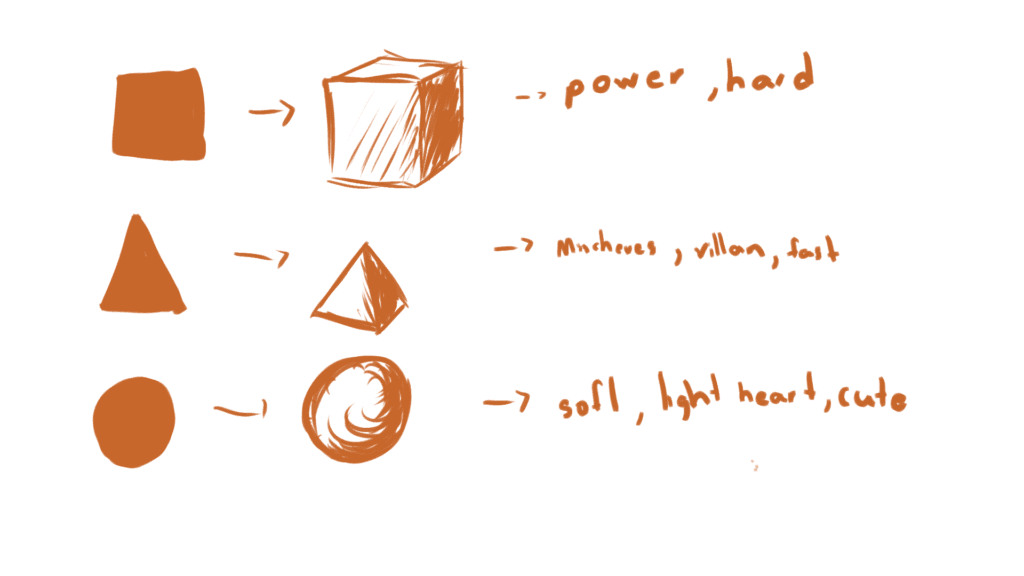 power, hard
Mncheves, villan, fast
soft, light heart, cute